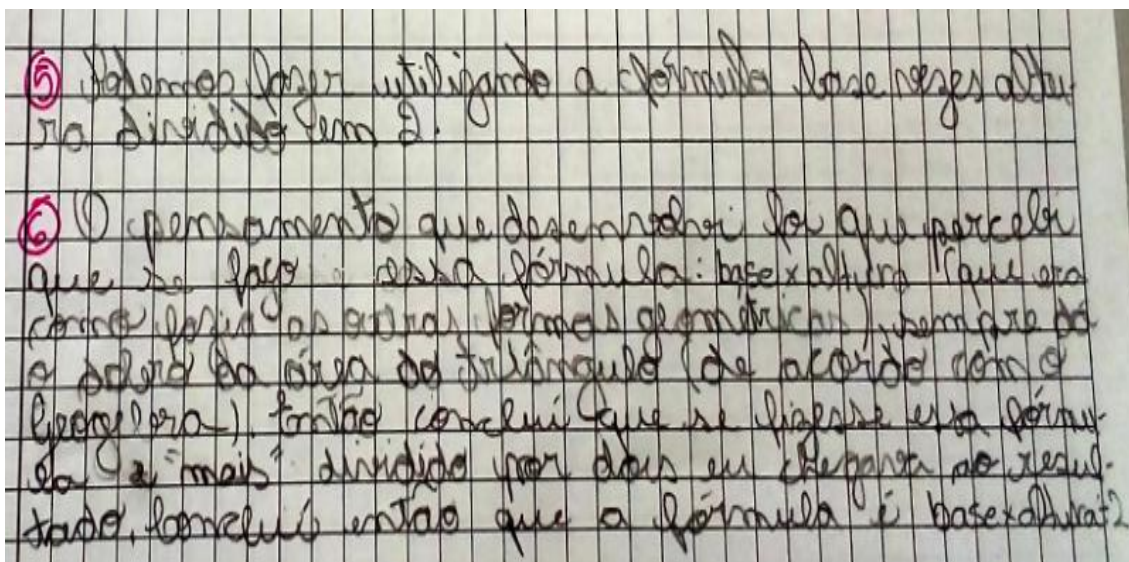 ⑤ Podemos fazer utilizando a fórmula base vezes altu-
ra dividido em 2.
⑥ O pensamento que desenvolvi foi que percebi
que se faço essa fórmula: base x altura (que era
como fazia as outras formas geométricas), sempre dá
o dobro da área do triângulo (de acordo com o
Geogebra). Então conclui que se fizesse essa fórmu-
la "mais" dividido por dois eu chegaria ao resul-
tado. Conclui então que a fórmula é base x altura ÷ 2